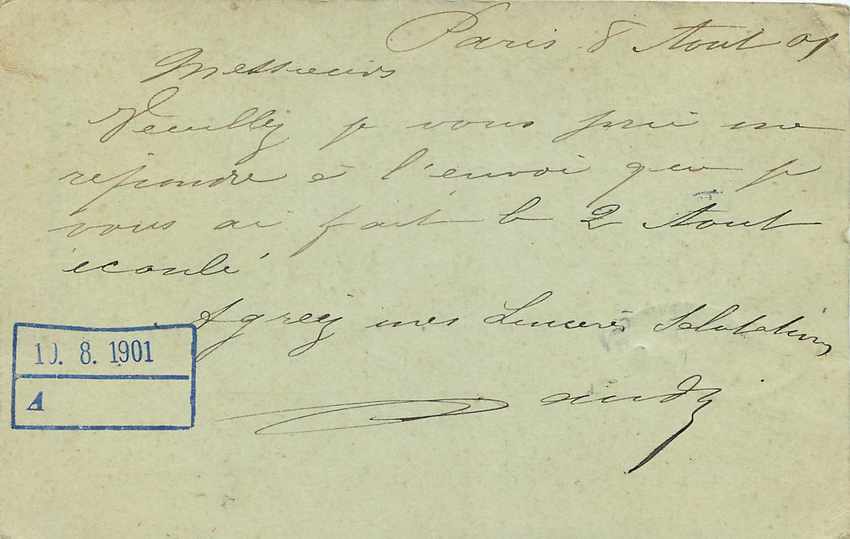 Paris 8 Aout 01
Messieurs
Veuillez je vous prie me
répondre à l'envoi que je
vous ai fait le 2 Aout
écoulé
Agréez mes sincères Salutations
10. 8. 1901
A